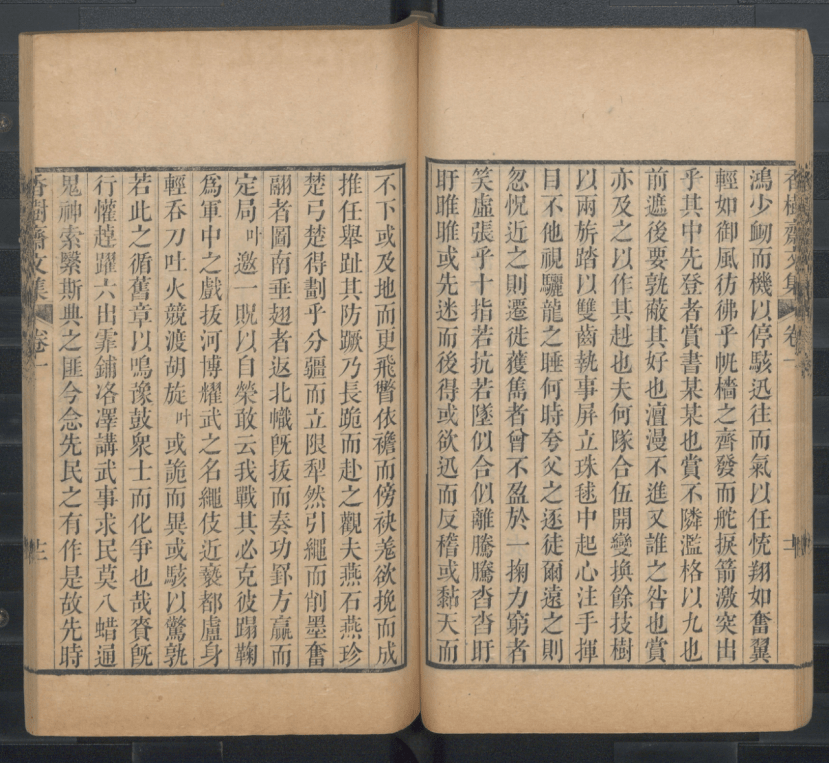 香樹齋文集 卷一
鴻少衂而機以停駭迅往而氣以任恍翔如奮翼
輕如御風彷彿乎帆檣之齊發而舵捩箭激突出
乎其中先登者賞書某某也賞不隣濫格以九也
前遮後要孰蔽其好也澶漫不進又誰之咎也賞
亦及之以作其赳也夫何隊合伍開變換餘技樹
以兩旂踏以雙齒執事屏立珠毬中起心注手揮
目不他視驪龍之睡何時夸父之逐徒爾遠之則
忽怳近之則遷徙獲雋者曾不盈於一掬力窮者
笑虛張乎十指若抗若墜似合似離騰騰杳杳盱
盱睢睢或先迷而後得或欲迅而反稽或黏天而
不下或及地而更飛瞥依襜而傍袂羌欲挽而成
推任舉趾其防蹶乃長跪而赴之觀夫燕石燕珍
楚弓楚得劃乎分疆而立限犁然引繩而削墨奮
翮者圖南垂翅者返北幟旣拔而奏功䍐方贏而
定局叶邀一旣以自榮敢云我戰其必克彼蹋鞠
爲軍中之戲拔河博耀武之名繩伎近䙝都盧身
輕吞刀吐火競渡胡旋叶或詭而異或駭以驚孰
若此之循舊章以鳴豫鼓衆士而化爭也哉賚旣
行懽趠躍六出霏鋪洛澤講武事求民莫八蜡通
鬼神索繄斯典之匪今念先民之有作是故先時
香樹齋文集 卷一 三